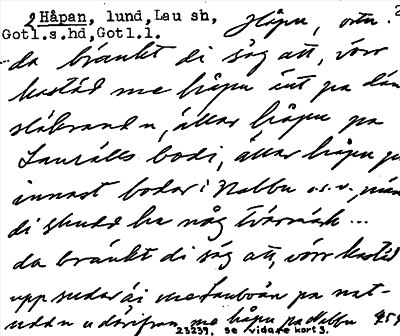 2 Håpan, lund, Lau sn,
Gotl.s.hd, Gotl.l.
Håpu, ortn. 2
da bräukt di säg att, vörr
kastäd me håpu äut pa
slåkrand n, ällar håpu pa
Laurälls bodi, ällar håpu
innast bodar i Nabbu o.s.v.,
di skudd ha någ tvärmäk ...
da bräukt di säg att, vörr kastäd
upp sudar äi me pa nat-
udd n u därifran me håpu pa Nabbu 459
23239, se vidare kort 3.